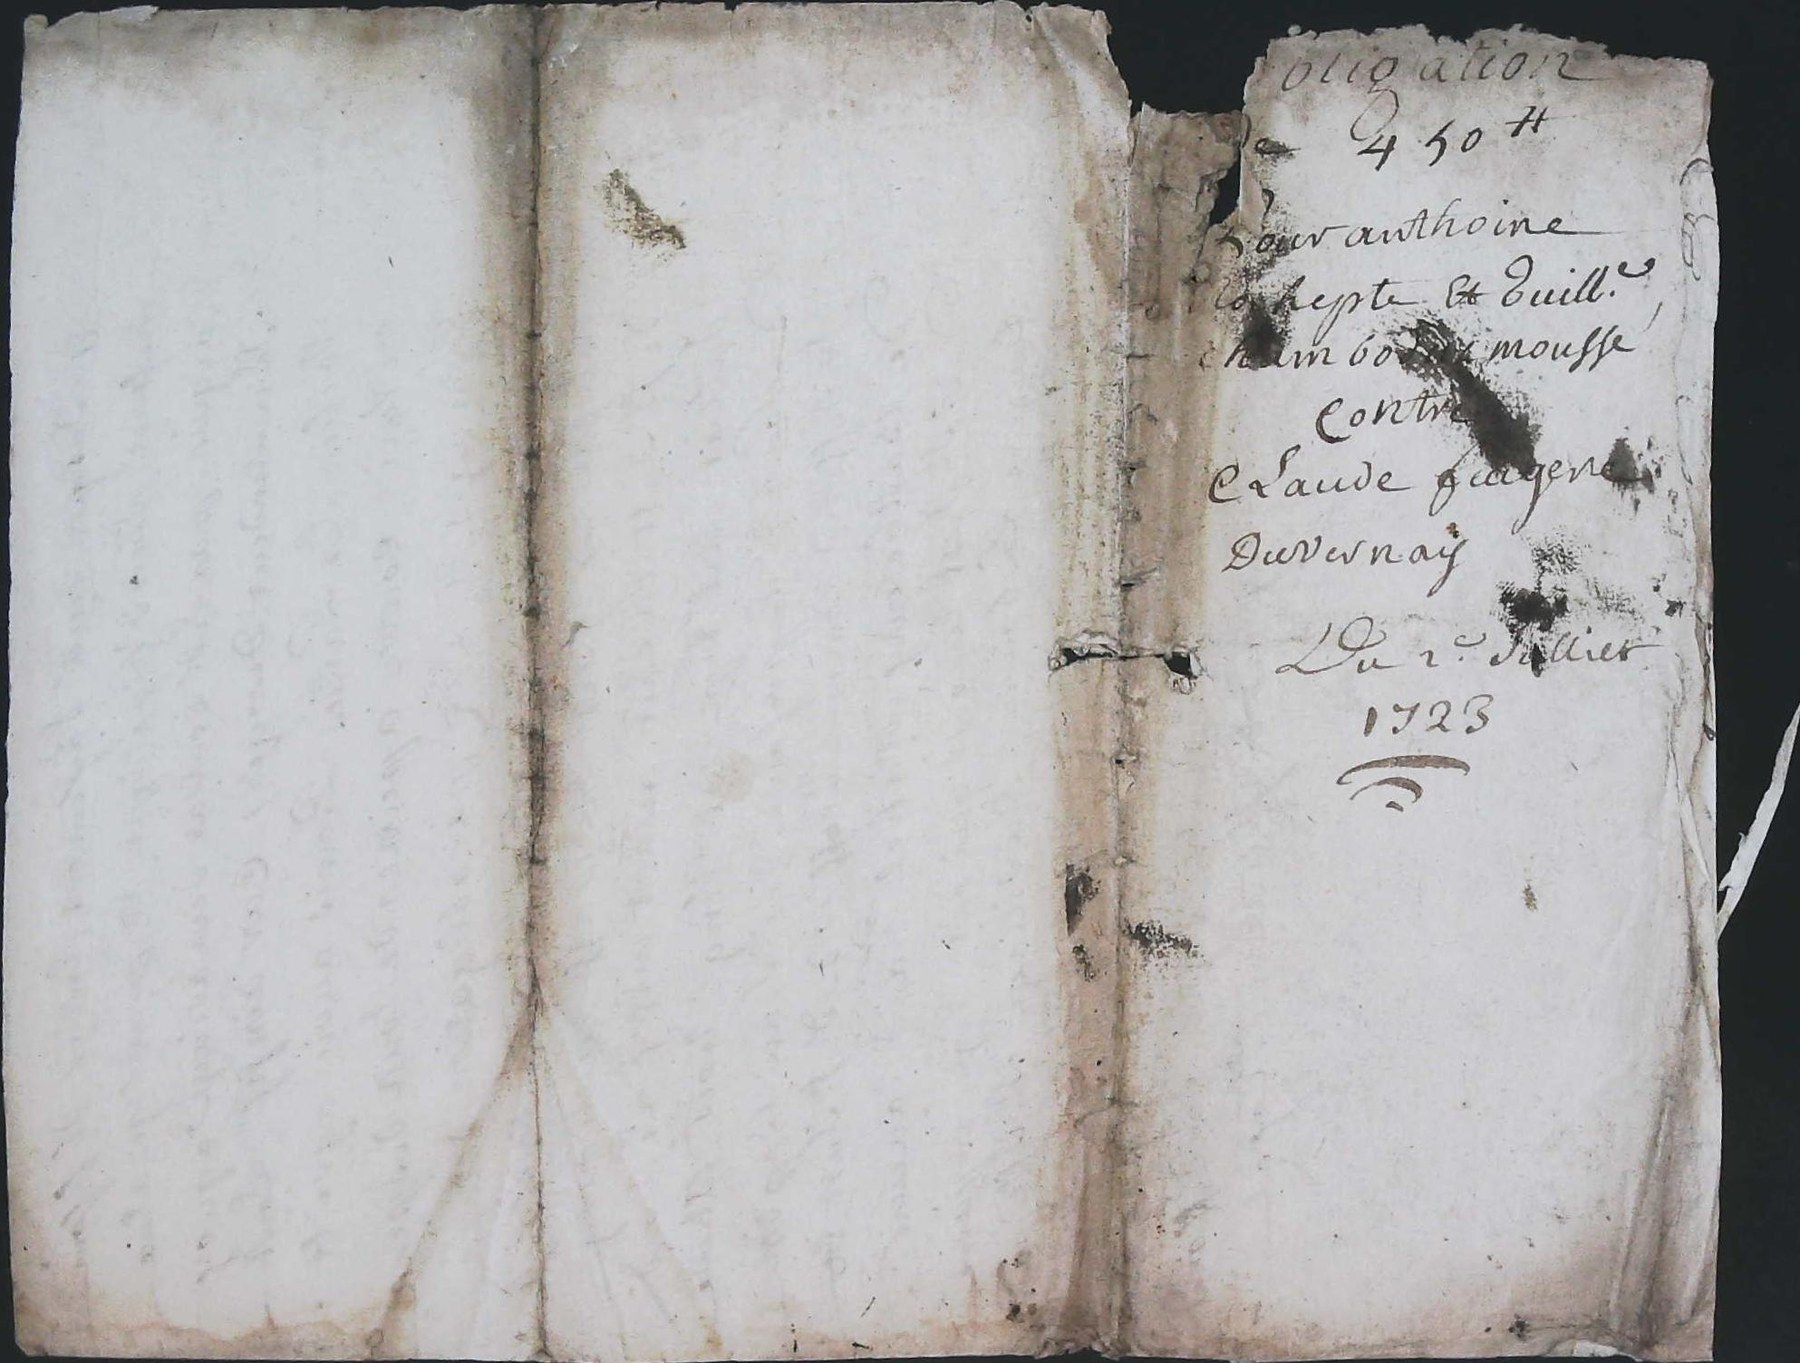 obligation
De 450 ₶
Pour anthoine
et Guill.e
mousse
Contre
Claude fuagene
Duvernay
Du 2.e Jullier
1723